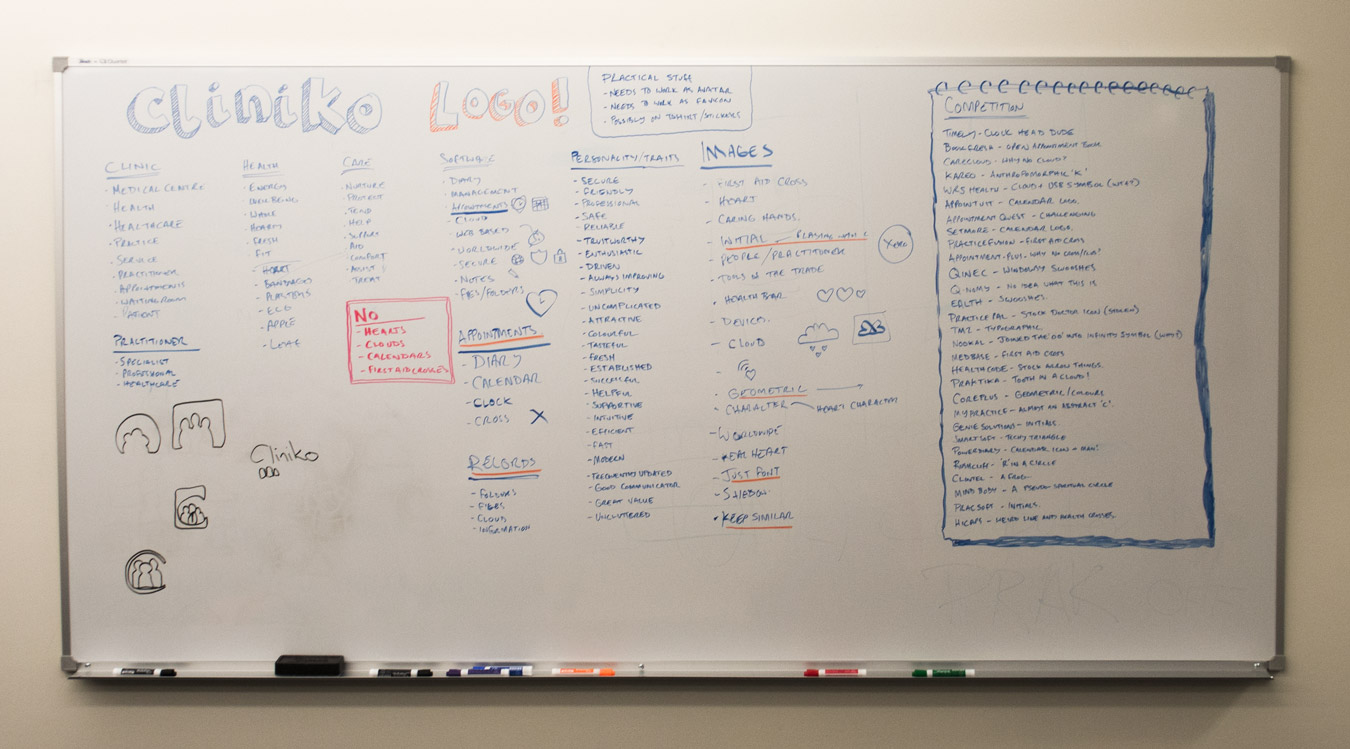 Cliniko Logo!
PRACTICAL STUFF
- NEEDS TO WORK AS AVATAR
- NEEDS TO WORK AS FAVICON
- POSSIBLY ON TSHIRT/STICKERS
CLINIC
- MEDICAL CENTRE
- HEALTH
- HEALTHCARE
- PRACTICE
- SERVICE
- PRACTITIONER
- APPOINTMENTS
- WAITING ROOM
- PATIENT
PRACTITIONER
- SPECIALIST
- PROFESSIONAL
- HEALTHCARE
HEALTH
- ENERGY
- WELL BEING
- HEARTY
- FRESH
- FIT
- HEART
- BANDAGES
- PLASTERS
- ECG
- APPLE
CARE
- NURTURE
- PROTECT
- TEND
- HELP
- SUPPORT
- AID
- COMFORT
- ASSIST
- TREAT
NO
- HEARTS
- CLOUDS
- CALENDARS
- FIRST AID CROSSES
Cliniko
SOFTWARE
- DIARY
- MANAGEMENT
- APPOINTMENTS
- CLOUD
- WEB BASED
- WORLDWIDE
- SECURE
- NOTES
- FILES/FOLDERS
APPOINTMENTS
- DIARY
- CALENDAR
- CLOCK
- CROSS
RECORDS
- FOLDERS
- FILES
- CLOUD
- INFORMATION
PERSONALITY/TRAITS
- SECURE
- FRIENDLY
- PROFESSIONAL
- SAFE
- RELIABLE
- TRUSTWORTHY
- ENTHUSIASTIC
- DRIVEN
- ALWAYS IMPROVING
- SIMPLICITY
- UNCOMPLICATED
- ATTRACTIVE
- COLOURFUL
- TASTEFUL
- FRESH
- ESTABLISHED
- SUCCESSFUL
- HELPFUL
- SUPPORTIVE
- INTUITIVE
- EFFICIENT
- FAST
- MODERN
- FREQUENTLY UPDATED
- GOOD COMMUNICATOR
- GREAT VALUE
- UNCLUTTERED
IMAGES
- FIRST AID CROSS
- HEART
- CARING HANDS.
- INITIAL - PLAYING WITH C
- PEOPLE/PRACTITIONER
- TOOLS OF THE TRADE
- HEALTH BAR
- DEVICES.
- CLOUD
- GEOMETRIC
- CHARACTER HEART CHARACTER
- WORLDWIDE
- REAL HEART
- JUST FONT
- KEEP SIMILAR
XERO
COMPETITION
TIMELY - CLOCK HEAD DUDE
BOOKFRESH - OPEN APPOINTMENT BOOK
CARECLOUD - WHY NO CLOUD?
KAREO - ANTHROPOMORPHIC 'K'
WRS HEALTH - CLOUD + USB SYMBOL (WTF?)
APPOINTUIT - CALENDAR LOGO.
APPOINTMENT QUEST - CHALLENGING
SETMORE - CALENDAR LOGO.
PRACTICE FUSION - FIRST AID CROSS
APPOINTMENT-PLUS - WHY NO CROSS/PLUS?
QINEC - WINDOWSY SWOOSHES
Q-NOMY - NO IDEA WHAT THIS IS
EALTH - SWOOSHES.
PRACTICE PAL - STOCK DOCTOR ICON (STOLEN)
TM2 - TYPOGRAPHIC
NOOKAL - JOINED THE 'OO' INTO INFINITY SYMBOL (WHY?)
MEDBASE - FIRST AID CROSS
HEALTHCODE - STOCK ARROW THINGS.
PRAKTIKA - TOOTH IN A CLOUD!
COREPLUS - GEOMETRIC/COLOURS
MYPRACTICE - ALMOST AN ABSTRACT 'C'.
GENIE SOLUTIONS - INITIALS.
SMARTSOFT - TECHY TRIANGLE
POWERDIARY - CALENDAR ICON + MAN!
RUSHCLIFF - 'R' IN A CIRCLE
CLINTEL - A FROG
MIND BODY - A PSEUDO-SPIRITUAL CIRCLE
PRACSOFT - INITIALS.
HICAPS - WEIRD LINE AND HEALTH CROSSES.